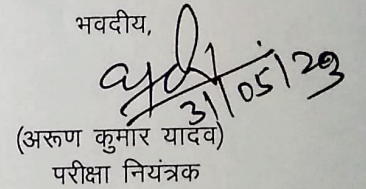 भवदीय,
31/05/23
(अरूण कुमार यादव)
परीक्षा नियंत्रक